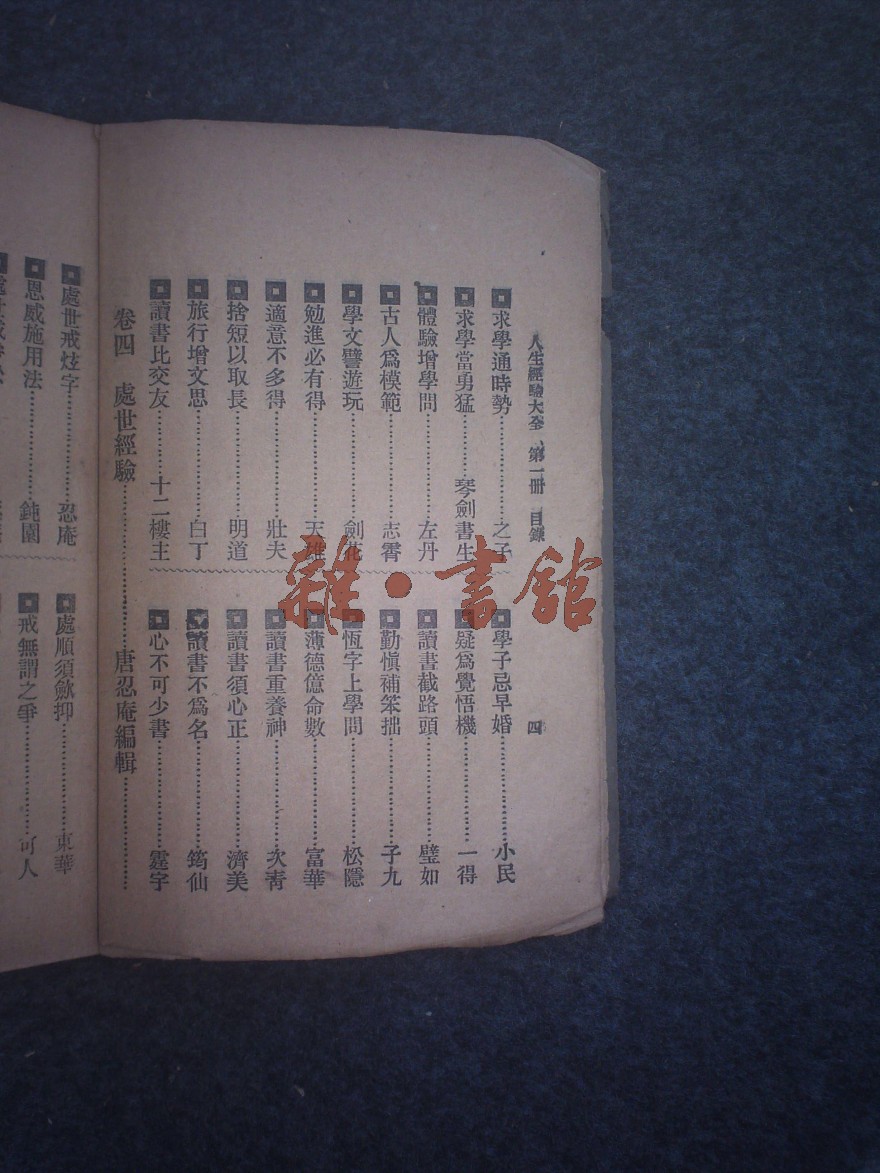 人生經驗大全 第一册 目錄
四
求學通時勢………之子
求學當勇猛………琴劍書生
體驗增學問………左丹
古人爲模範………志霄
學文譬遊玩………劍花
勉進必有得………天雄
適意不多得………壯夫
捨短以取長………明道
旅行增文思………白丁
讀書比交友………十二樓主
學子忌早婚………小民
疑爲覺悟機………一得
讀書截路頭………璧如
勤愼補笨拙………子九
恆字上學問………松隱
薄德億命數………富華
讀書重養神………次靑
讀書須心正………濟美
讀書不爲名………筠仙
心不可少書………霆宇
卷四 處世經驗………唐忍庵編輯………
處世戒炫字………忍庵
恩威施用法………鈍園
處順須歛抑………東華
戒無謂之爭………可人
雜·書館